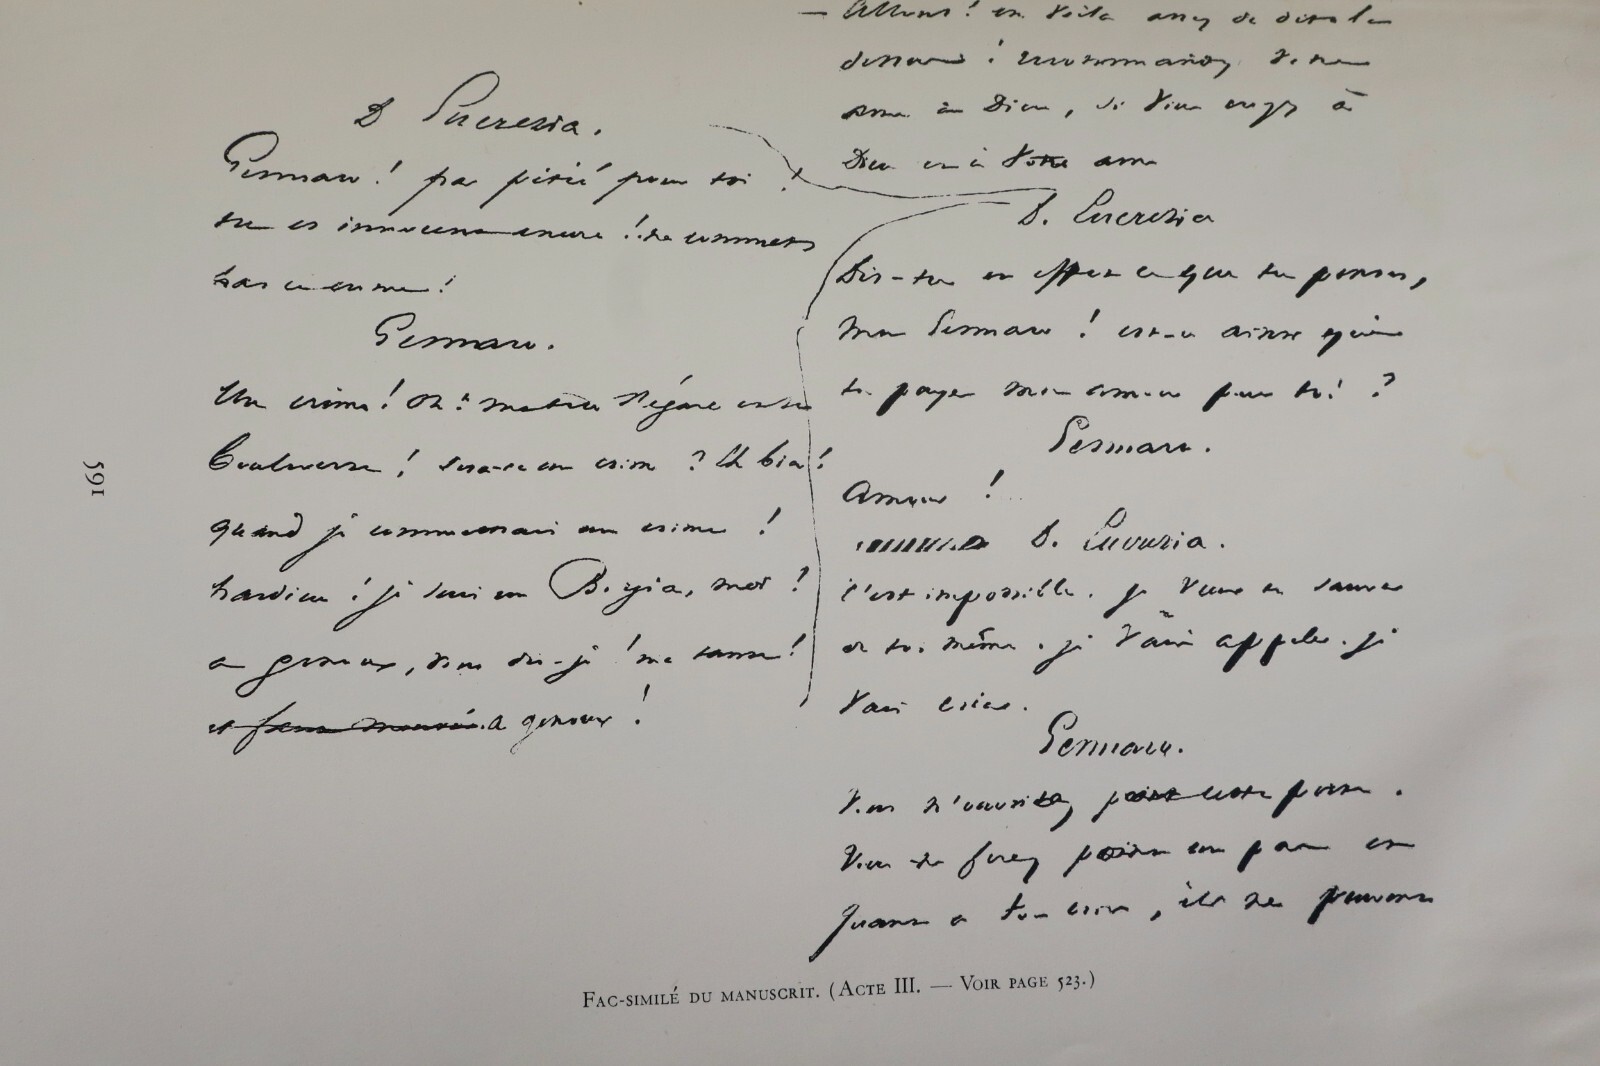 D Lucrezia.
Gennaro ! par pitié pour toi !
tu es innocent encore ! ne commets
pas ce crime !
Gennaro.
Un crime ! Oh ! ma tête s'égare et se
bouleverse ! Sera-ce un crime ? Eh bien !
quand je commettrais un crime !
Pardieu ! je suis un Borgia, moi !
a genoux, vous dis-je ! ma tante !
et a genoux !
— Allons ! en voilà assez de dit là
dessus ! recommandez votre
âme à Dieu, si vous croyez à
Dieu et à votre ame
D. Lucrezia
Dis-tu en effet ce que tu penses,
mon Gennaro ! est-ce ainsi que
tu payes mon amour pour toi ?
Gennaro.
Amour !
D. Lucrezia.
C'est impossible. je veux te sauver
de toi-même. je vais appeler. je
vais crier.
Gennaro.
Vous n'ouvrirez point cette porte.
Vous ne ferez point un pas et
quant à vos cris, ils ne peuvent
591
FAC-SIMILÉ DU MANUSCRIT. (ACTE III. — VOIR PAGE 523.)